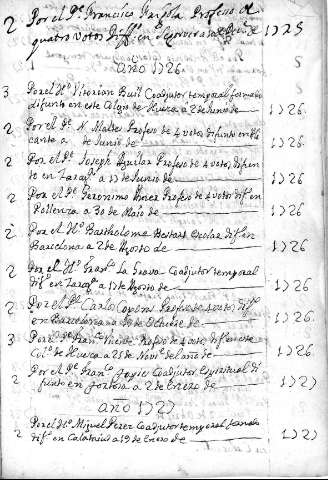 2 Por el Pe. Francisco Professo de
quatro votos difto. en 1725
año 1726
3 Por el Ho. Victorian Buil Coadjutor temporal formado
difunto en este Colegio de Huesca a 2 de Junio de 1726.
2 Por el Pe. N. Matheu Profeso de 4 votos difunto en Ali
cante a de Junio de 1726
2 Por el Pe. Joseph Aguilar Profeso de 4 votos, difun
to en Zarago. a 13 de Junio de 1726
2 Por el Pe. Geronimo Profeso de 4 votos difo. en
Pollenza a 30 de Maio de 1726
2 Por el Ho. Bartholome Bestart Escolar difo. en
Barcelona a 2 de Agosto de 1726
2 Por el Ho. Franco. La Grava Coadjutor temporal
difo. en Zarago. a 17 de Agosto de 1726
2 Por el Pe. Carlo Profeso de 4 votos difo.
en Barcelona a 30 de Octubre de 1726.
3 Por el Pe. Franco. Vicente Profeso de 4 votos, difo. en este
Colo. de Huesca a 25 de Novie. del año de 1726
2 Por el Pe. Franco. Coadjutor Espiritual di
funto en Tortosa a 2 de Enero de 1727
año 1727
2 Por el Ho. Miguel Perez Coadjutor temporal formado
difo. en Calataiud a 19 de Enero de 1727